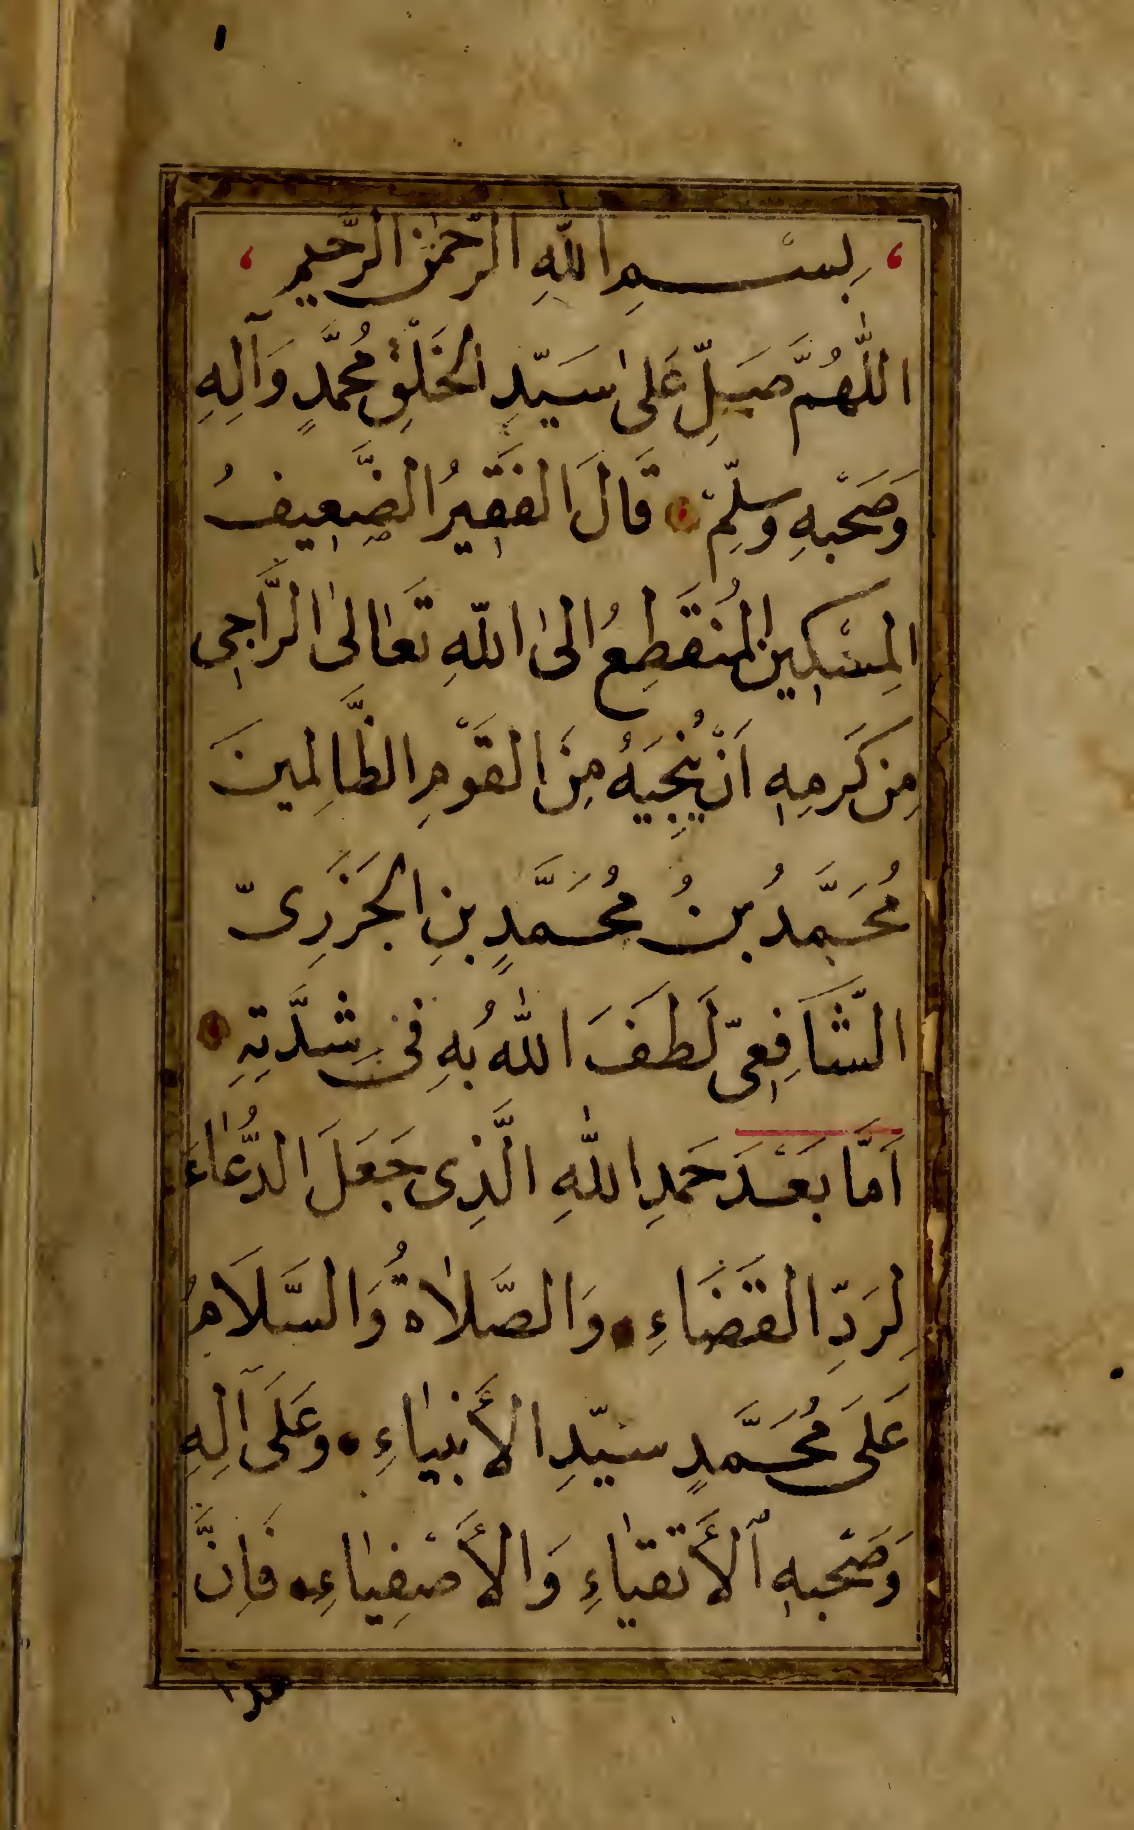 ١
بِسْمِ اللهِ الرَّحْمٰنِ الرَّحِيمِ
اللّٰهُمَّ صَلِّ عَلىٰ سَيِّدِ الخَلْقِ مُحَمَّدٍ وَآلِهِ
وَصَحْبِهِ وَسَلِّمْ قَالَ الفَقِيرُ الضَّعِيفُ
المِسْكِينُ المُنْقَطِعُ الىٰ اللّٰهِ تَعَالىٰ الرَّاجِى
مِنْ كَرَمِهِ اَنْ يُنْجِيَهُ مِنَ القَوْمِ الظَّالِمِينَ
مُحَمَّدُ بنُ مُحَمَّدِ بنِ الجَزَرِىّ
الشَّافِعِىّ لَطَفَ اللّٰهُ بِهِ فى شِدَّتِهِ
اَمَّا بَعْدَ حَمْدِ اللّٰهِ الَّذِى جَعَلَ الدُّعَاءَ
لِرَدِّ القَضَاءِ وَالصَّلَاةُ وَالسَّلَامُ
عَلَى مُحَمَّدٍ سَيِّدِ الأَنْبِيَاءِ وَعَلَى آلِهِ
وَصَحْبِهِ الأَتْقِيَاءِ وَالأَصْفِيَاءِ فَاِنَّ
هذا